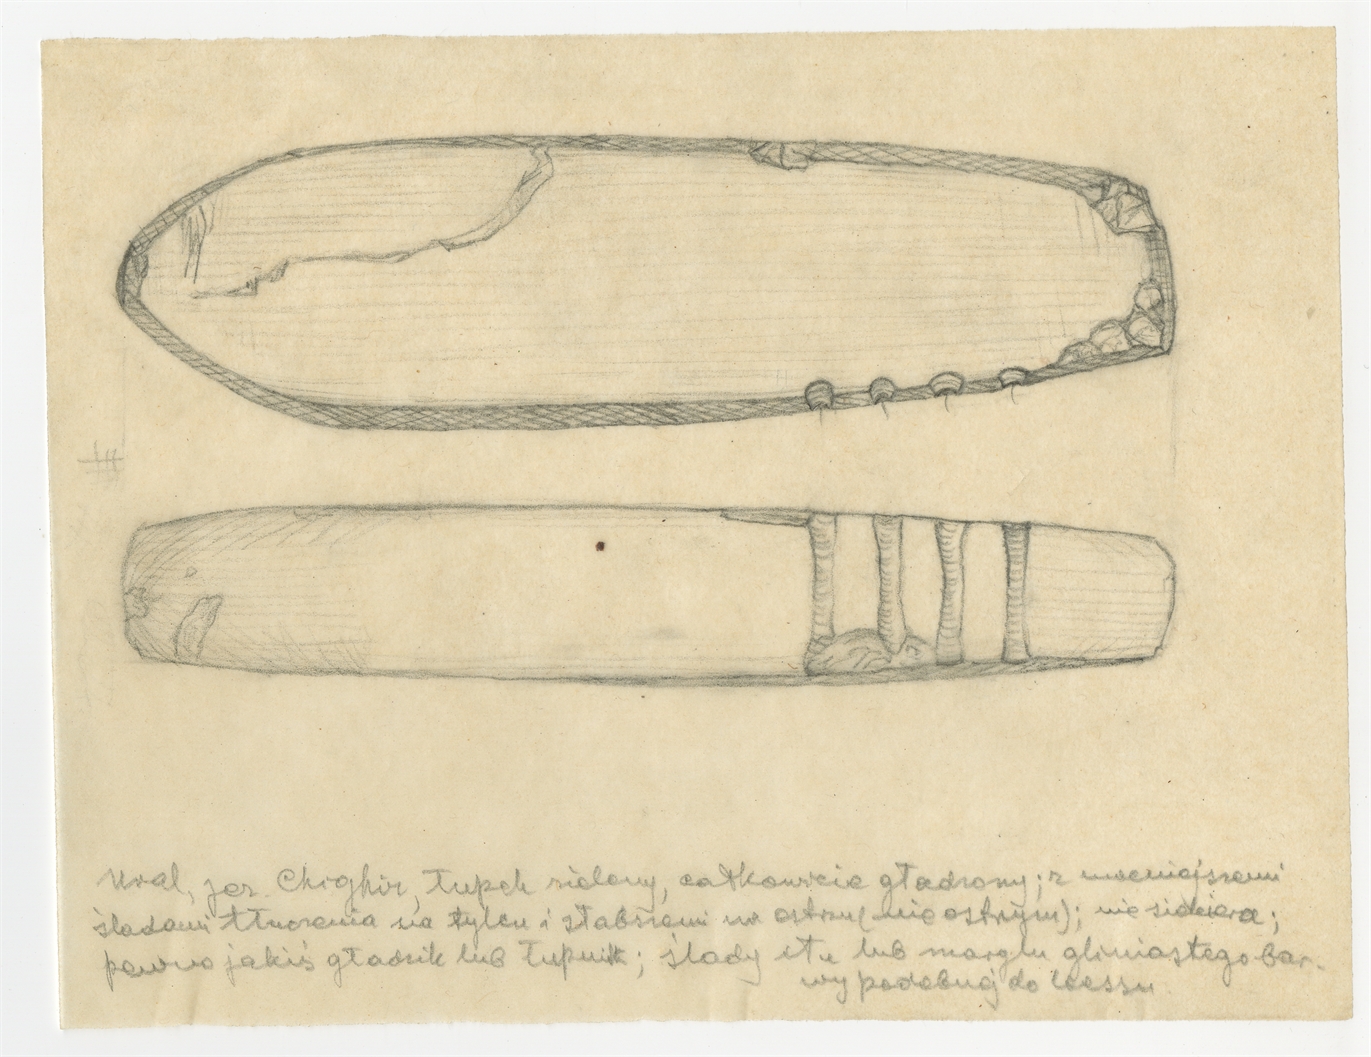 Ural, jez. Chighir, łupek zielony, całkowicie gładzony; z mocniejszemi
śladami tłuczenia na tylcu i słabszemi na ostrzu (nie ostrym); nie siekiera;
pewno jakiś gładzik lub łupnik; ślady iłu lub marglu gliniastego bar-
wy podobnej do loessu